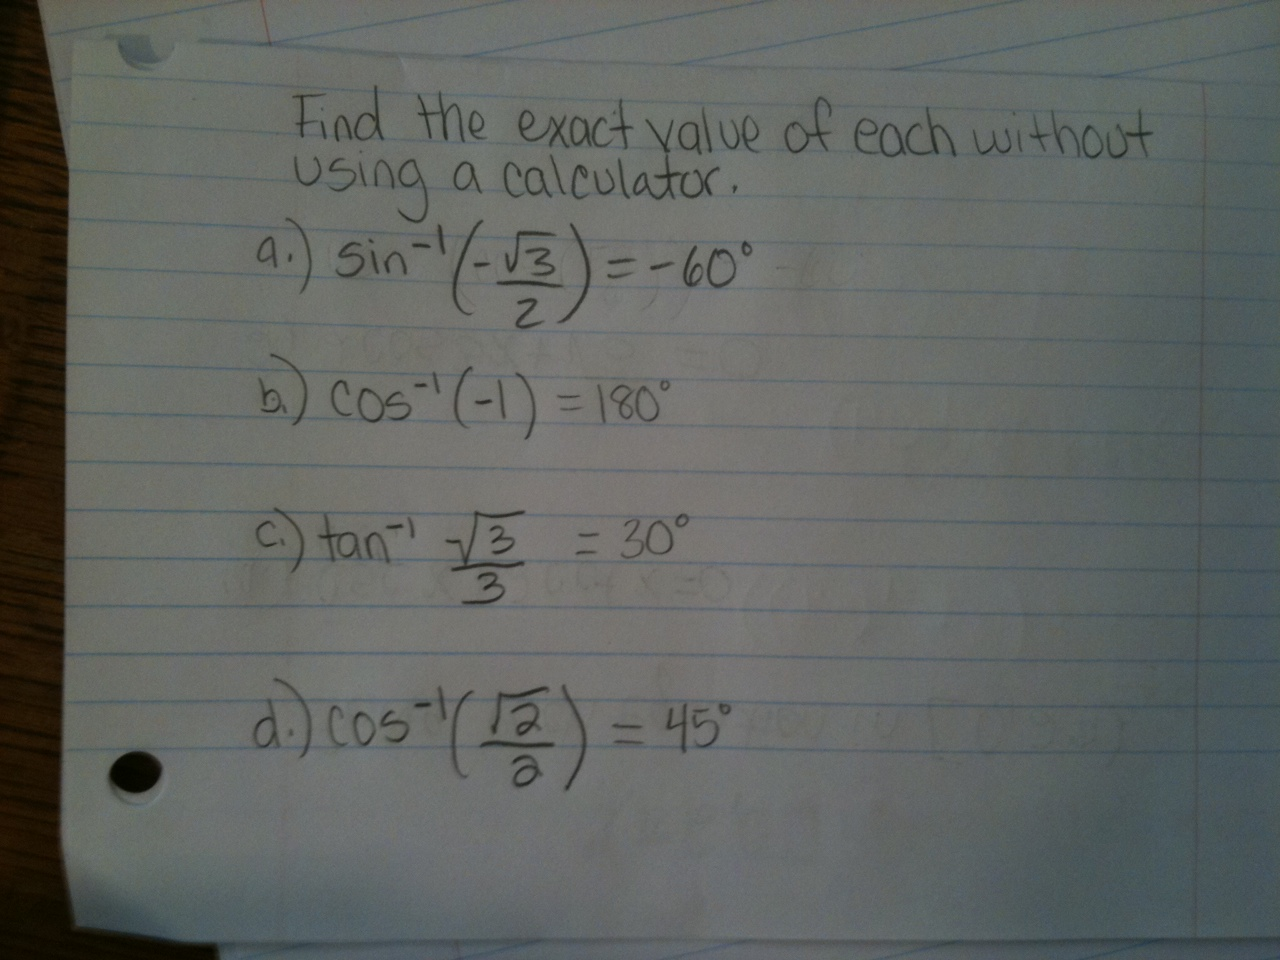 Find the exact value of each without
using a calculator.
a.) sin⁻¹(-√3/2) = -60°
b.) cos⁻¹(-1) = 180°
c.) tan⁻¹ √3/3 = 30°
d.) cos⁻¹(√2/2) = 45°